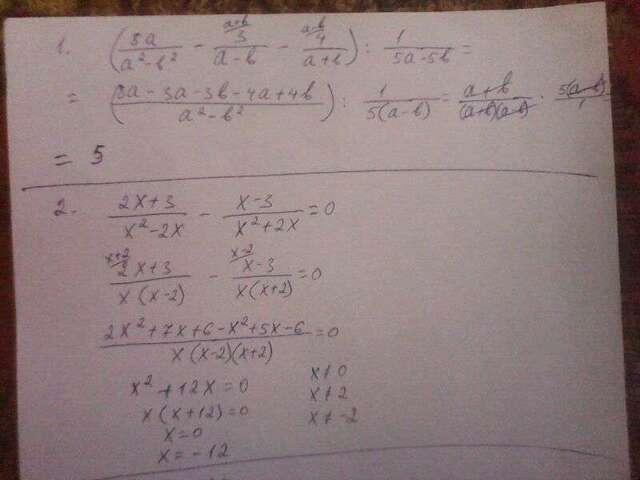 1. (8a/(a²-b²) - (a+b/) 3/(a-b) - (a-b/) 4/(a+b)) : 1/(5a-5b) =
= ((8a-3a-3b-4a+4b)/(a²-b²)) : 1/(5(a-b)) = (a+b)/((a+b)(a-b)) · 5(a-b)/1 =
= 5
2. (2x+3)/(x²-2x) - (x-3)/(x²+2x) = 0
(x+2/) (2x+3)/(x(x-2)) - (x-2/) (x-3)/(x(x+2)) = 0
(2x²+7x+6-x²+5x-6)/(x(x-2)(x+2)) = 0
x²+12x=0 x≠0
x(x+12)=0 x≠2
x=0 x≠-2
x=-12